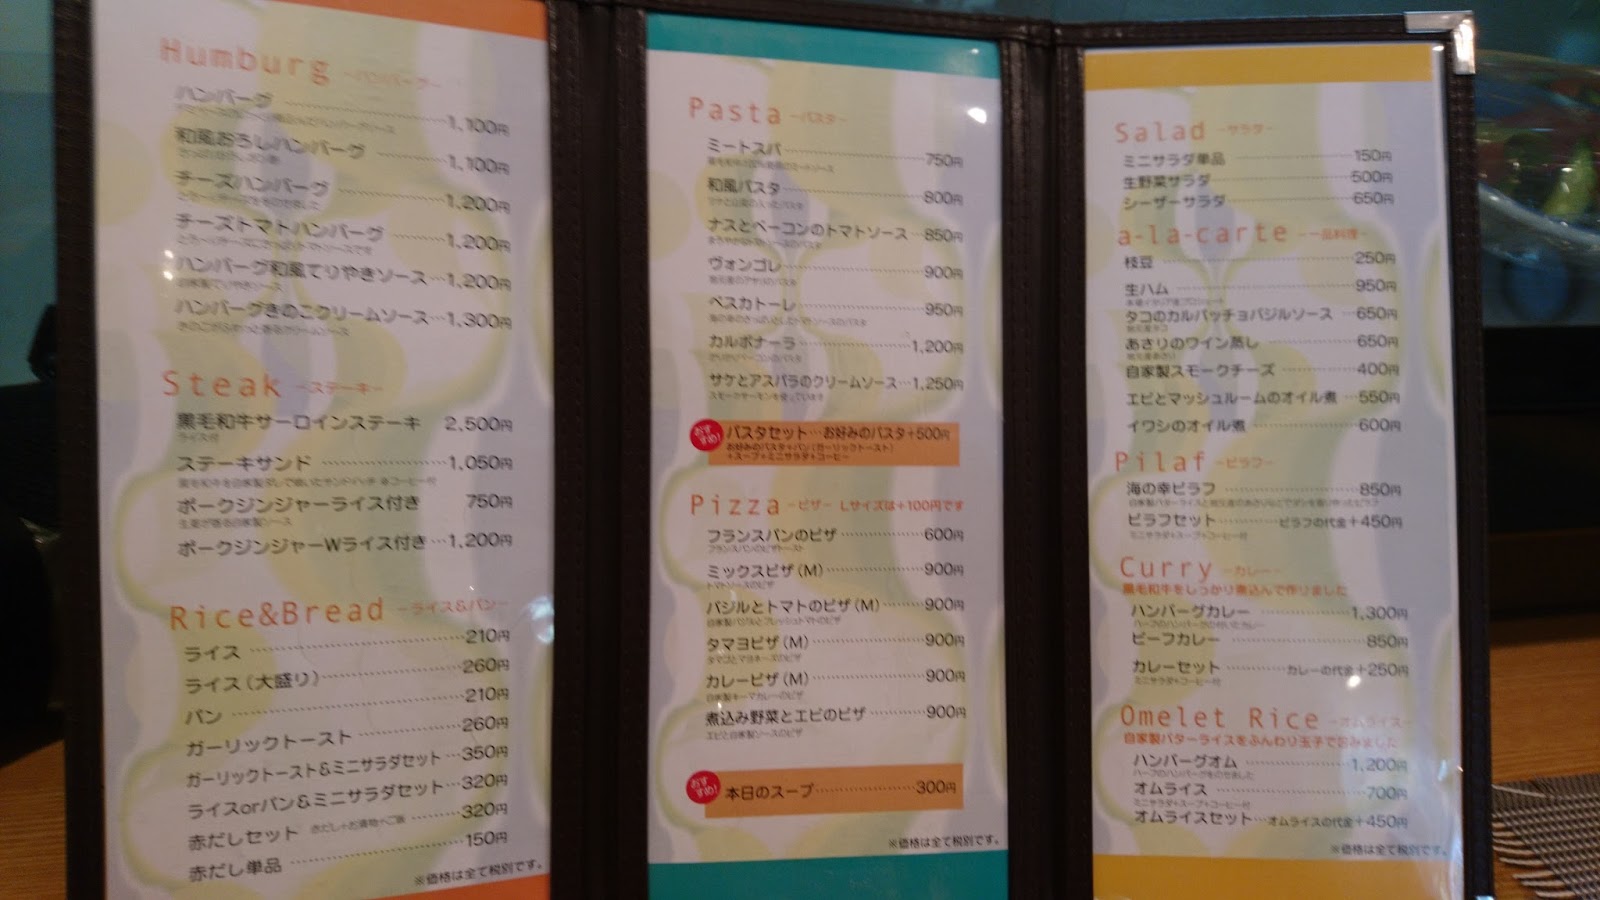 Humburg －ハンバーグ－
ハンバーグ 1,100円
和風おろしハンバーグ 1,100円
チーズハンバーグ 1,200円
チーズトマトハンバーグ 1,200円
ハンバーグ和風てりやきソース 1,200円
自家製てりやきソース
ハンバーグきのこクリームソース 1,300円
Steak －ステーキ－
黒毛和牛サーロインステーキ 2,500円
ライス付
ステーキサンド 1,050円
ポークジンジャーライス付き 750円
生姜が香る自家製ソース
ポークジンジャーWライス付き 1,200円
Rice&Bread －ライス&パン－
ライス 210円
ライス(大盛り) 260円
パン 210円
ガーリックトースト 260円
ガーリックトースト&ミニサラダセット 350円
ライスorパン&ミニサラダセット 320円
赤だしセット 赤だし+お漬物+ご飯 320円
赤だし単品 150円
※価格は全て税別です。
Pasta －パスタ－
ミートスパ 750円
和風パスタ 800円
ナスとベーコンのトマトソース 850円
ヴォンゴレ 900円
地元産のアサリのパスタ
ペスカトーレ 950円
カルボナーラ 1,200円
サケとアスパラのクリームソース 1,250円
スモークサーモンを使っています
おすすめ! パスタセット…お好みのパスタ+500円
お好みのパスタ+パン(ガーリックトースト)
+スープ+ミニサラダ+コーヒー
Pizza －ピザ－ Lサイズは+100円です
フランスパンのピザ 600円
フランスパンのピザトースト
ミックスピザ(M) 900円
トマトソースのピザ
バジルとトマトのピザ(M) 900円
自家製バジルとフレッシュトマトのピザ
タマヨピザ(M) 900円
タマゴとマヨネーズのピザ
カレーピザ(M) 900円
自家製キーマカレーのピザ
煮込み野菜とエビのピザ 900円
エビと自家製ソースのピザ
おすすめ! 本日のスープ 300円
※価格は全て税別です。
Salad －サラダ－
ミニサラダ単品 150円
生野菜サラダ 500円
シーザーサラダ 650円
a-la-carte －一品料理－
枝豆 250円
生ハム 950円
タコのカルパッチョバジルソース 650円
地元産タコ
あさりのワイン蒸し 650円
地元産あさり
自家製スモークチーズ 400円
エビとマッシュルームのオイル煮 550円
イワシのオイル煮 600円
Pilaf －ピラフ－
海の幸ピラフ 850円
ピラフセット ピラフの代金+450円
ミニサラダ+スープ+コーヒー付
Curry －カレー－
黒毛和牛をしっかり煮込んで作りました
ハンバーグカレー 1,300円
ハーフのハンバーグの付いたカレー
ビーフカレー 850円
カレーセット カレーの代金+250円
ミニサラダ+コーヒー付
Omelet Rice －オムライス－
自家製バターライスをふんわり玉子で包みました
ハンバーグオム 1,200円
ハーフのハンバーグをのせました
オムライス 700円
ミニサラダ+スープ+コーヒー付
オムライスセット…オムライスの代金+450円
※価格は全て税別です。